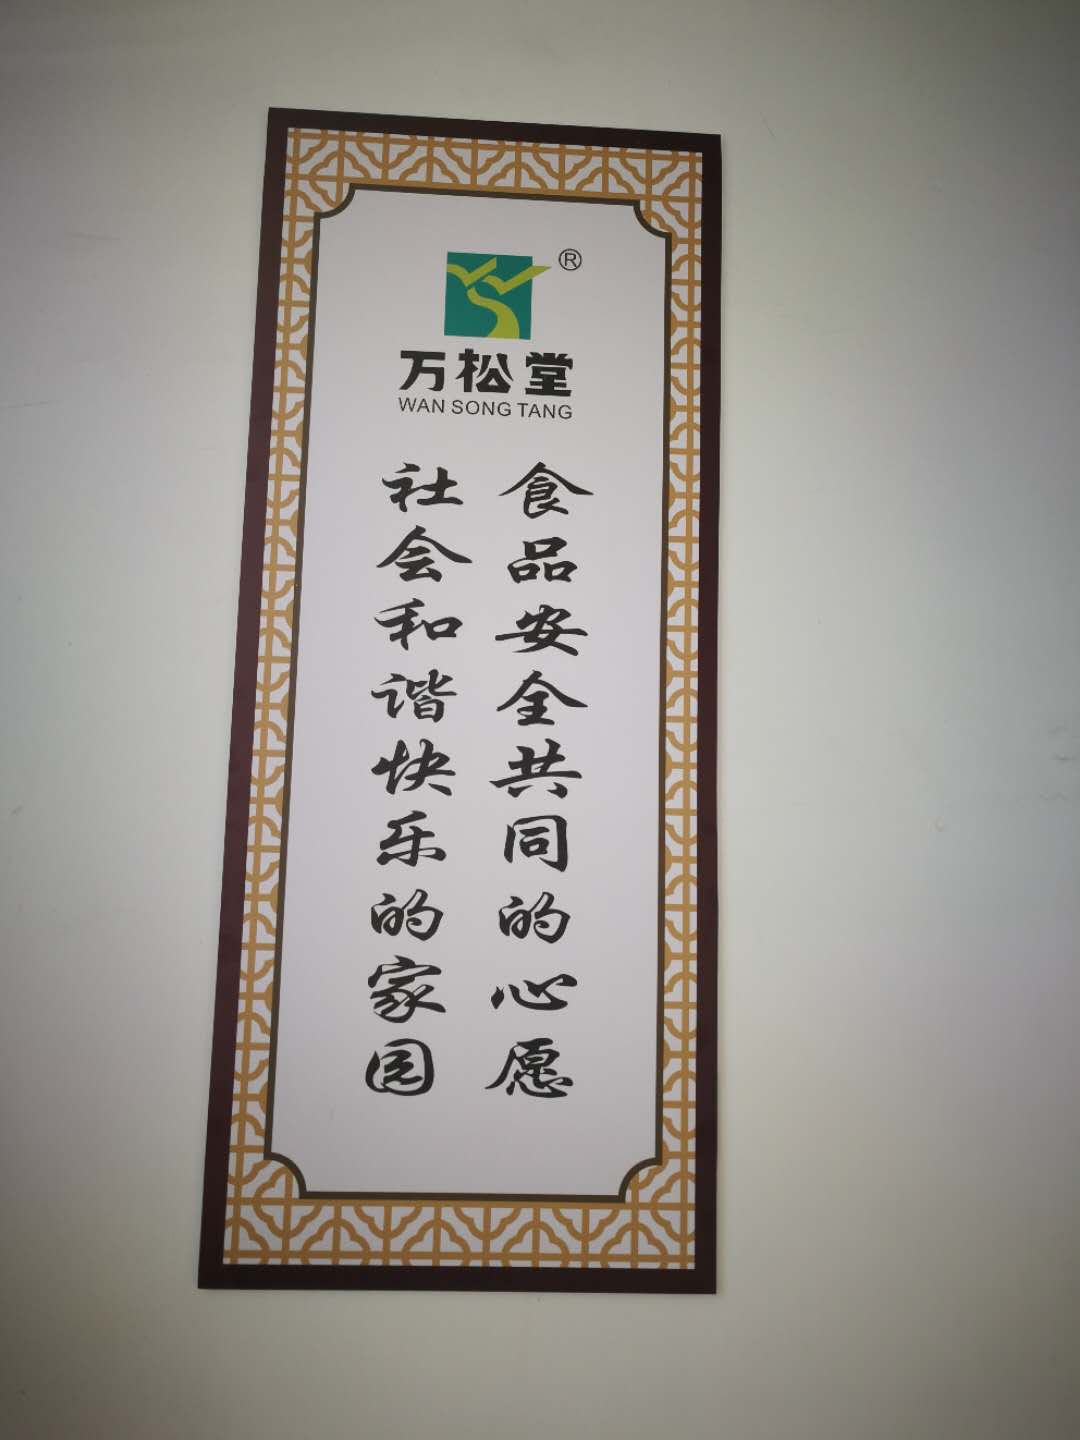 ®
万松堂
WAN SONG TANG
食品安全共同的心愿
社会和谐快乐的家园